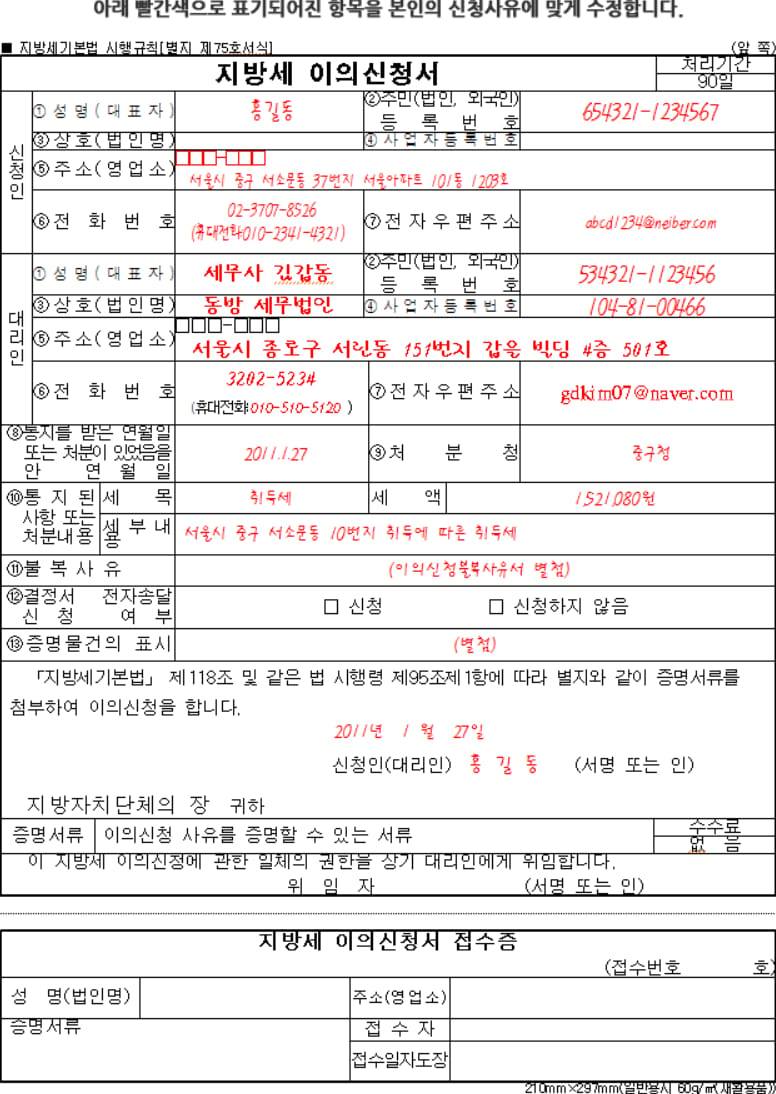 아래 빨간색으로 표기되어진 항목을 본인의 신청사유에 맞게 수정합니다.
■ 지방세기본법 시행규칙[별지 제75호서식] (앞 쪽)
지방세 이의신청서
처리기간
90일
신청인
① 성 명 ( 대 표 자 ) 홍길동 ②주민(법인, 외국인) 등 록 번 호 654321-1234567
③ 상 호 ( 법 인 명 ) ④ 사 업 자 등 록 번 호
⑤ 주 소 ( 영 업 소 ) □□□-□□□
서울시 중구 서소문동 37번지 서울아파트 101동 1203호
⑥ 전 화 번 호 02-3707-8526 (휴대전화010-2341-4321) ⑦ 전 자 우 편 주 소 abcd1234@neiber.com
대리인
① 성 명 ( 대 표 자 ) 세무사 김갑동 ②주민(법인, 외국인) 등 록 번 호 534321-1123456
③ 상 호 ( 법 인 명 ) 동방 세무법인 ④ 사 업 자 등 록 번 호 104-81-00466
⑤ 주 소 ( 영 업 소 ) □□□-□□□
서울시 종로구 서린동 151번지 갑을 빌딩 4층 501호
⑥ 전 화 번 호 3202-5234 (휴대전화:010-510-5120 ) ⑦ 전 자 우 편 주 소 gdkim07@naver.com
⑧통지를 받은 연월일 또는 처분이 있었음을 안 연 월 일 2011.1.27 ⑨처 분 청 중구청
⑩통 지 된 사항 또는 처분내용 세 목 취득세 세 액 1,521,080원
세 부 내 용 서울시 중구 서소문동 10번지 취득에 따른 취득세
⑪불 복 사 유 (이의신청불복사유서 별첨)
⑫결정서 전자송달 신 청 여 부 □ 신청 □ 신청하지 않음
⑬증명물건의 표시 (별첨)
「지방세기본법」 제118조 및 같은 법 시행령 제95조제1항에 따라 별지와 같이 증명서류를
첨부하여 이의신청을 합니다.
2011년 1 월 27일
신청인(대리인) 홍 길 동 (서명 또는 인)
지방자치단체의 장 귀하
증명서류 이의신청 사유를 증명할 수 있는 서류 수수료
없 음
이 지방세 이의신청에 관한 일체의 권한을 상기 대리인에게 위임합니다.
위 임 자 (서명 또는 인)
지방세 이의신청서 접수증
(접수번호 호)
성 명(법인명) 주소(영업소)
증명서류 접 수 자
접수일자도장
210mm×297mm(일반용지 60g/㎡(재활용품))